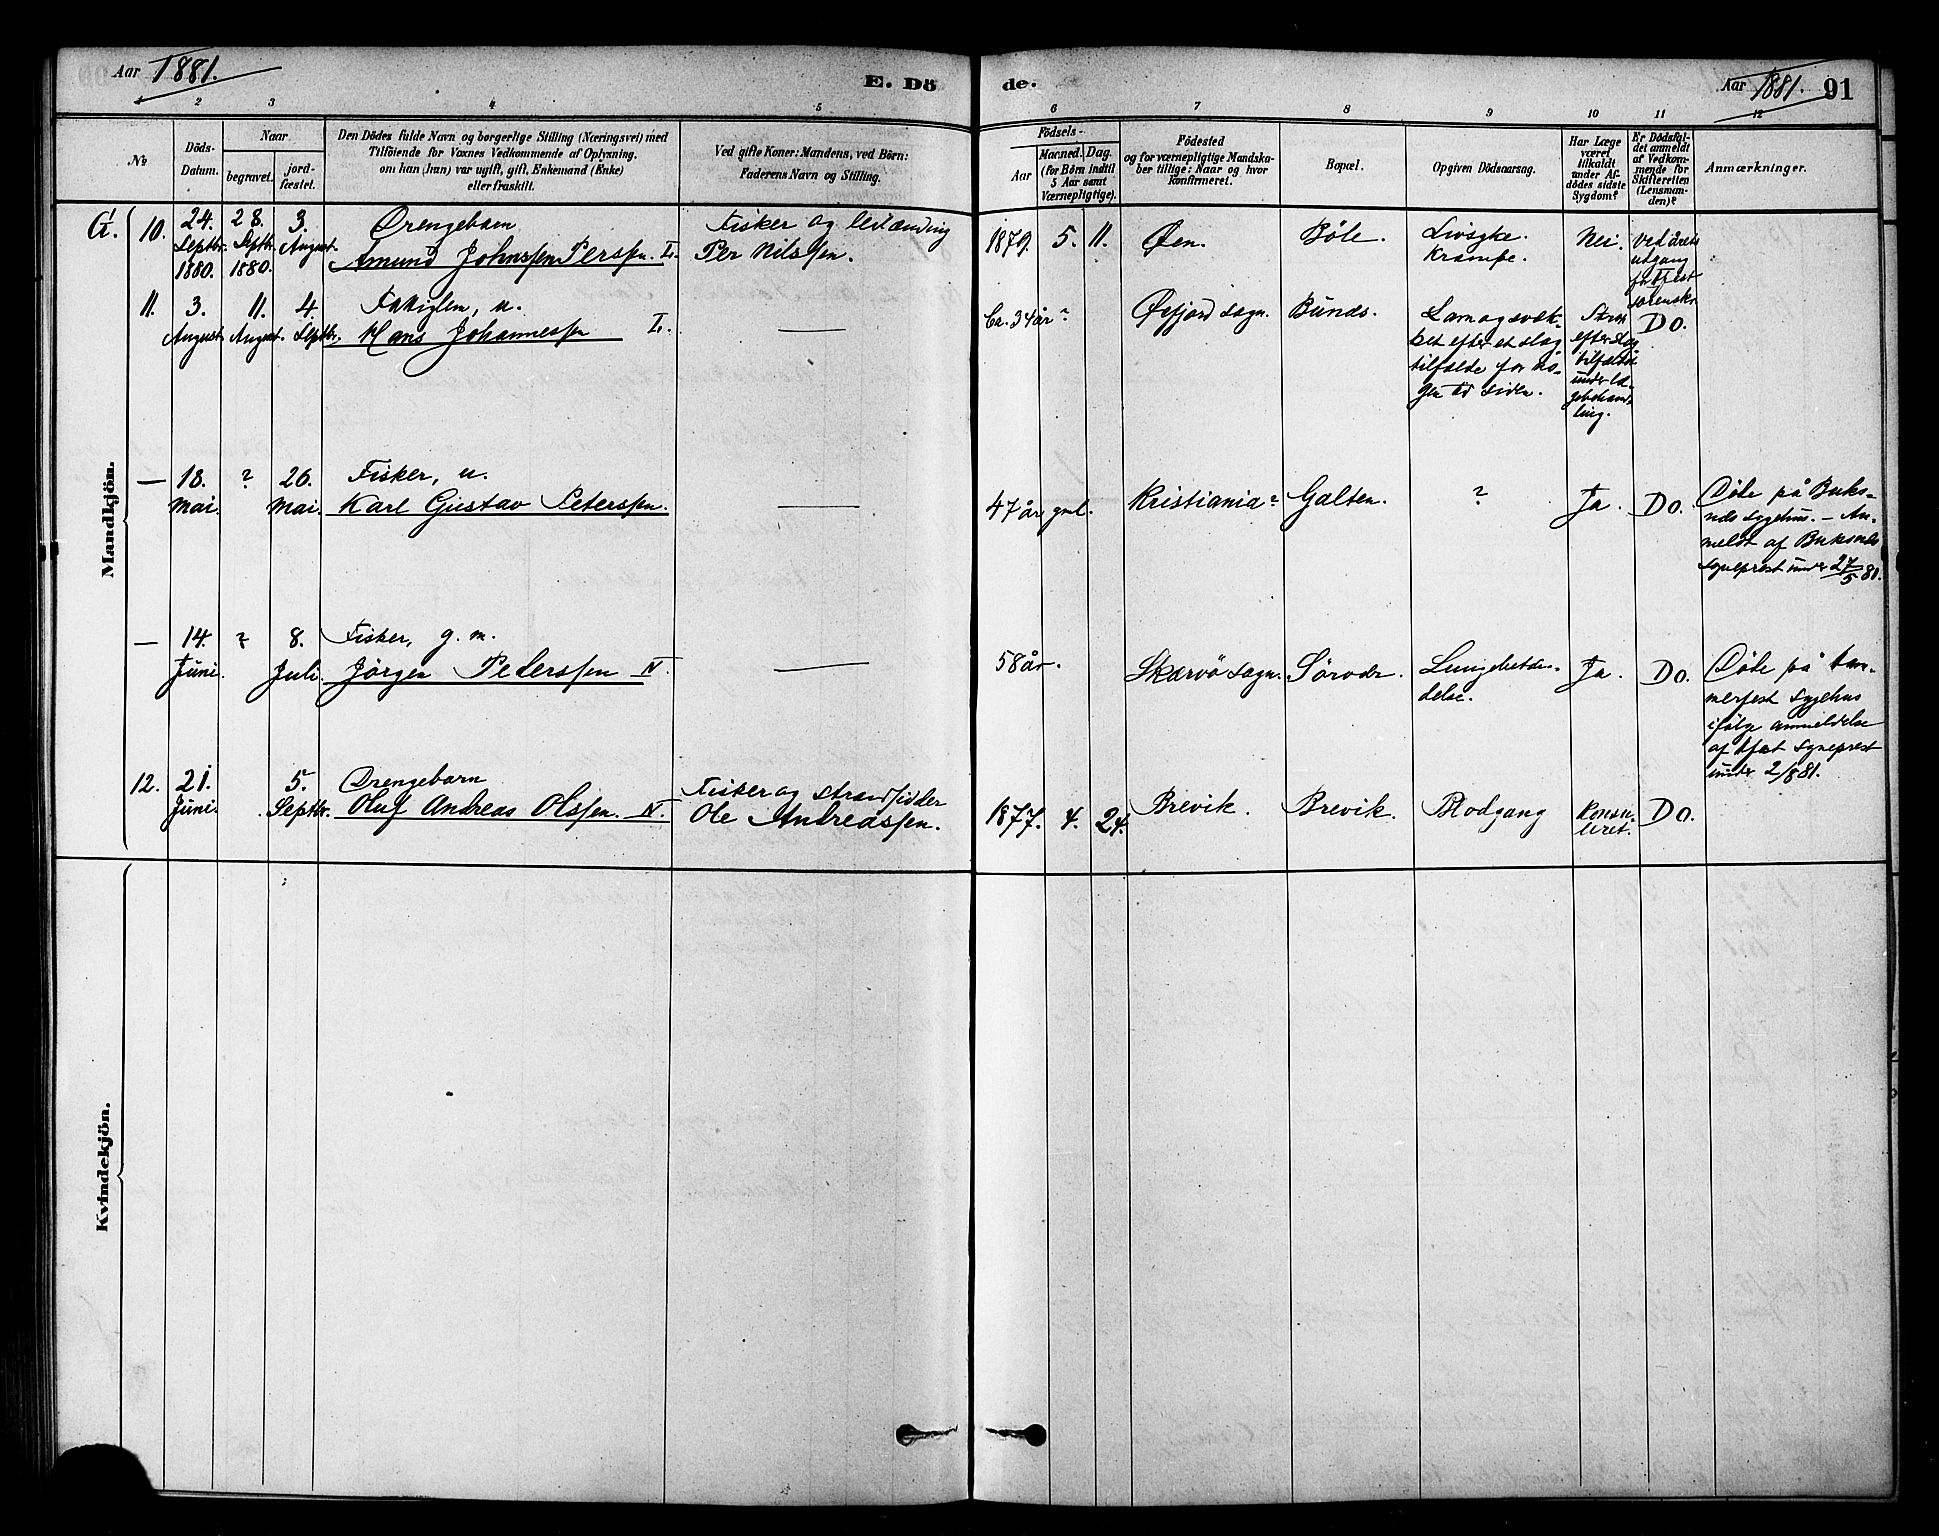 Aar 1881.
E. Dö
de.
Aar 1881. 91
2 3 4 5 6 7 8 9 10 11 12
No
Döds-
Datum.
Naar
begravet.
jord-
fæstet.
Den Dödes fulde Navn og borgerlige Stilling (Næringsvei) med
Tilföiende for Voxnes Vedkommende af Oplysning,
om han (hun) var ugift, gift, Enkemand (Enke)
eller fraskilt.
Ved gifte Koner: Mandens, ved Börn:
Faderens Navn og Stilling.
Födsels-
Aar
Maaned. Dag.
(for Börn indtil
5 Aar samt
Værnepligtige).
Födested
og for værnepligtige Mandska-
ber tillige: Naar og hvor
konfirmeret.
Bopæl.
Opgiven Dödsaarsag.
Har Læge
været
tilkaldt
under Af-
dödes sidste
Sygdom?
Er Dödsfal-
det anmeldt
af Vedkom-
mende for
Skifteretten
(Lensman-
den)?
Anmærkninger.
Mandkjön.
10.
24.
Septbr.
1880.
28.
Septbr.
1880.
3.
August.
Drengebarn
Amund Johnssen Perssen.
Fisker og
Per Nilssen.
1879. 5. 11.
Øen.
Böle.
Krampe.
Nei.
Ved årets
utgang
11.
3.
August.
11.
August.
4.
Septbr.
Hans Johannessen
Ca. 34 år ?
Øxfjord sogn.
Bunds.
ket efter et slag-
tilfælde for no-
gen tid siden.
Strax
efter slag
tilfældet
under læ-
gebehand-
ling.
Do.
— 18.
Mai.
?
26.
Mai.
Fisker, u.
Karl Gustav Peterssen.
47 år gml.
Kristiania?
Galten.
?
Ja.
Do.
Döde på Buks-
næs sygehus. — An-
meldt af Buksnæs
sogneprest under 27/5 81.
— 14.
Juni.
?
8.
Juli.
Fisker, g. m.
Jörgen Pederssen N
58 år.
Skærvö sogn.
Lungebetæn-
delse.
Ja.
Do.
Döde på Ham-
merfest sygehus
ifölge anmeldelse
af Hfest sogneprest
under 2/7 81.
12.
21.
Juni.
5.
Septbr.
Drengebarn
Oluf Andreas Olssen. N.
Fisker og strandsidder
Ole Andreassen.
1877. 4. 24.
Brevik.
Brevik.
Blodgang
Konsu-
leret.
Do.
Kvindekjön.